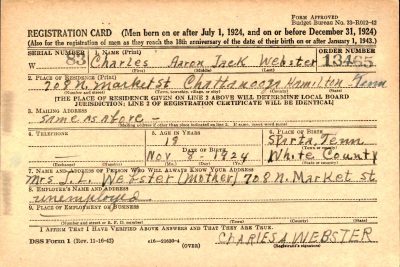 FORM APPROVED
Budget Bureau No. 33-R012-42
REGISTRATION CARD (Men born on or after July 1, 1924, and on or before December 31, 1924)
(Also for the registration of men as they reach the 18th anniversary of the date of their birth on or after January 1, 1943.)
SERIAL NUMBER 1. NAME (Print) ORDER NUMBER
W 83 Charles Aaron Jack Webster 13465
(First) (Middle) (Last)
2. PLACE OF RESIDENCE (Print)
708 N. Market St Chattanooga Hamilton Tenn
(County) (State)
[THE PLACE OF RESIDENCE GIVEN ON LINE 2 ABOVE WILL DETERMINE LOCAL BOARD
JURISDICTION; LINE 2 OF REGISTRATION CERTIFICATE WILL BE IDENTICAL]
3. MAILING ADDRESS
same as above -
[Mailing address if other than place indicated on line 2. If same, insert word same]
4. TELEPHONE 5. AGE IN YEARS 6. PLACE OF BIRTH
18 Sparta, Tenn
DATE OF BIRTH
Nov 8 1924 White County
(Exchange) (Number) (Mo.) (Day) (Yr.) (State or country)
7. NAME AND ADDRESS OF PERSON WHO WILL ALWAYS KNOW YOUR ADDRESS
Mrs J.L. Webster (Mother) 708 N. Market St
8. EMPLOYER'S NAME AND ADDRESS
unemployed
9. PLACE OF EMPLOYMENT OR BUSINESS
(Number and street or R. F. D. number) (Town) (County) (State)
I AFFIRM THAT I HAVE VERIFIED ABOVE ANSWERS AND THAT THEY ARE TRUE.
DSS Form 1 (Rev. 11-16-42) (OVER) CHARLES A WEBSTER
(Registrant's signature)